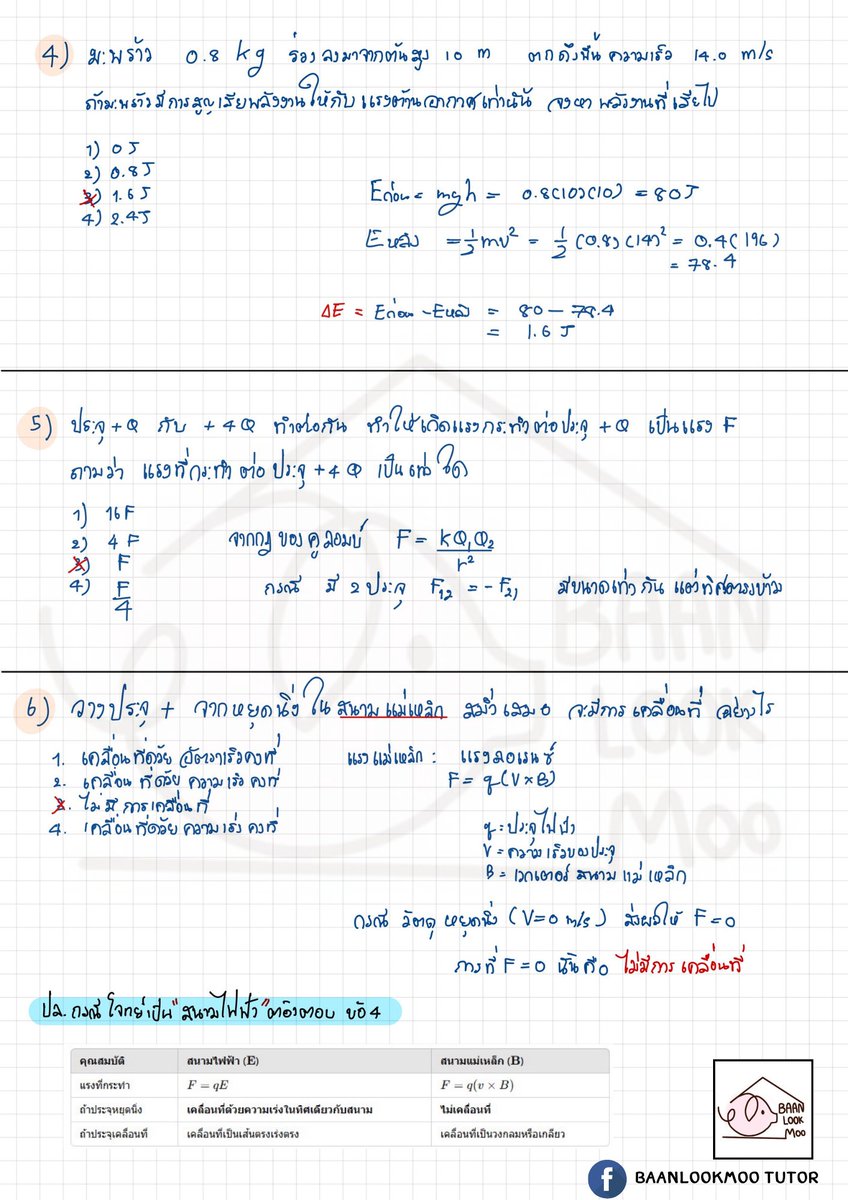 4) มะพร้าว 0.8 kg ร่วงลงมาจากต้นสูง 10 m ตกถึงพื้นความเร็ว 14.0 m/s
ถ้ามะพร้าวมีการสูญเสียพลังงานให้กับแรงต้านอากาศเท่านั้น จงหาพลังงานที่เสียไป
1) 0 J
2) 0.8 J
3) 1.6 J
4) 2.4 J
Eก่อน = mgh = 0.8(10)(10) = 80 J
Eหลัง = 1/2 mv² = 1/2 (0.8)(14)² = 0.4(196)
= 78.4
ΔE = Eก่อน - Eหลัง = 80 - 78.4
= 1.6 J
5) ประจุ +Q กับ +4Q ทำต่อกัน ทำให้เกิดแรงกระทำต่อประจุ +Q เป็นแรง F
ถามว่า แรงที่กระทำต่อประจุ +4Q เป็นเท่าใด
1) 16F
2) 4F
3) F
4) F/4
จากกฎของคูลอมบ์ F = kQ₁Q₂/r²
กรณี มี 2 ประจุ F₁₂ = -F₂₁ มีขนาดเท่ากัน แต่ทิศตรงข้าม
6) วางประจุ + จากหยุดนิ่งในสนามแม่เหล็ก สม่ำเสมอ จะมีการเคลื่อนที่อย่างไร
1. เคลื่อนที่ด้วยอัตราเร็วคงที่
2. เคลื่อนที่ด้วยความเร็วคงที่
3. ไม่มีการเคลื่อนที่
4. เคลื่อนที่ด้วยความเร่งคงที่
แรงแม่เหล็ก : แรงลอเรนซ์
F = q(V×B)
q = ประจุไฟฟ้า
V = ความเร็วของประจุ
B = เวกเตอร์สนามแม่เหล็ก
กรณี วัตถุหยุดนิ่ง (V=0 m/s) ส่งผลให้ F=0
การที่ F=0 นั่นคือ ไม่มีการเคลื่อนที่
ปล. กรณีโจทย์เป็น "สนามไฟฟ้า" ต้องตอบ ข้อ 4
คุณสมบัติ สนามไฟฟ้า (E) สนามแม่เหล็ก (B)
แรงที่กระทำ F = qE F = q(v × B)
ถ้าประจุหยุดนิ่ง เคลื่อนที่ด้วยความเร่งในทิศเดียวกับสนาม ไม่เคลื่อนที่
ถ้าประจุเคลื่อนที่ เคลื่อนที่เป็นเส้นตรงเร่งตรง เคลื่อนที่เป็นวงกลมหรือเกลียว
BAAN
LOOK
MOO
BAAN
LOOK
MOO
f BAANLOOKMOO TUTOR